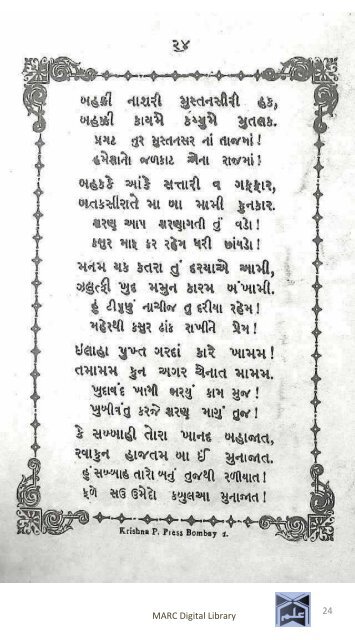 ૨૪
બહક્કી નાશરી મુસ્તનસીરી હક,
બહક્કી કાયમે કય્યુમે મુતલક.
પ્રગટ નુર મુસ્તનસર નાં તાજમાં !
હમેશાનો જળકાટ એના રાજમાં !
બહકકે આંકે સત્તારી વ ગફફાર,
બતકસીરાતે મા બા મામી કુનકાર.
શરણ આપ શરણાગતી તું વડો !
કસુર માફ કર રહેમ ધરી છાંયડો !
મનમ યક કતરા તું દરયાએ આમી,
ઝલુત્ફી ખુદ મસુન કારમ બખામી.
હું ટીપુણું નાચીજ તુ દરીયા રહેમ !
મહેરથી કસુર ઢાંક રાખીને પ્રેમ !
ઇલાહા પુખ્ત ગરદાં કારે ખામમ !
તમામમ કુન અગર એનાત મામમ.
ખુદાવંદ ખામી ભરયું કામ મુજ !
ખુબીવંતુ કરજે શરણ માગું તુજ !
કે સબ્બાહી તોરા ખાનદ બહાજાત,
રવાકુન હાજતમ બા ઈ મુનાજાત.
હું સબ્બાહ તારો બનું તુજથી રળીયાત !
ફળે સઉ ઉમેદો કબુલઆ મુનાજાત !
Krishna P. Press Bombay 2.
MARC Digital Library
24